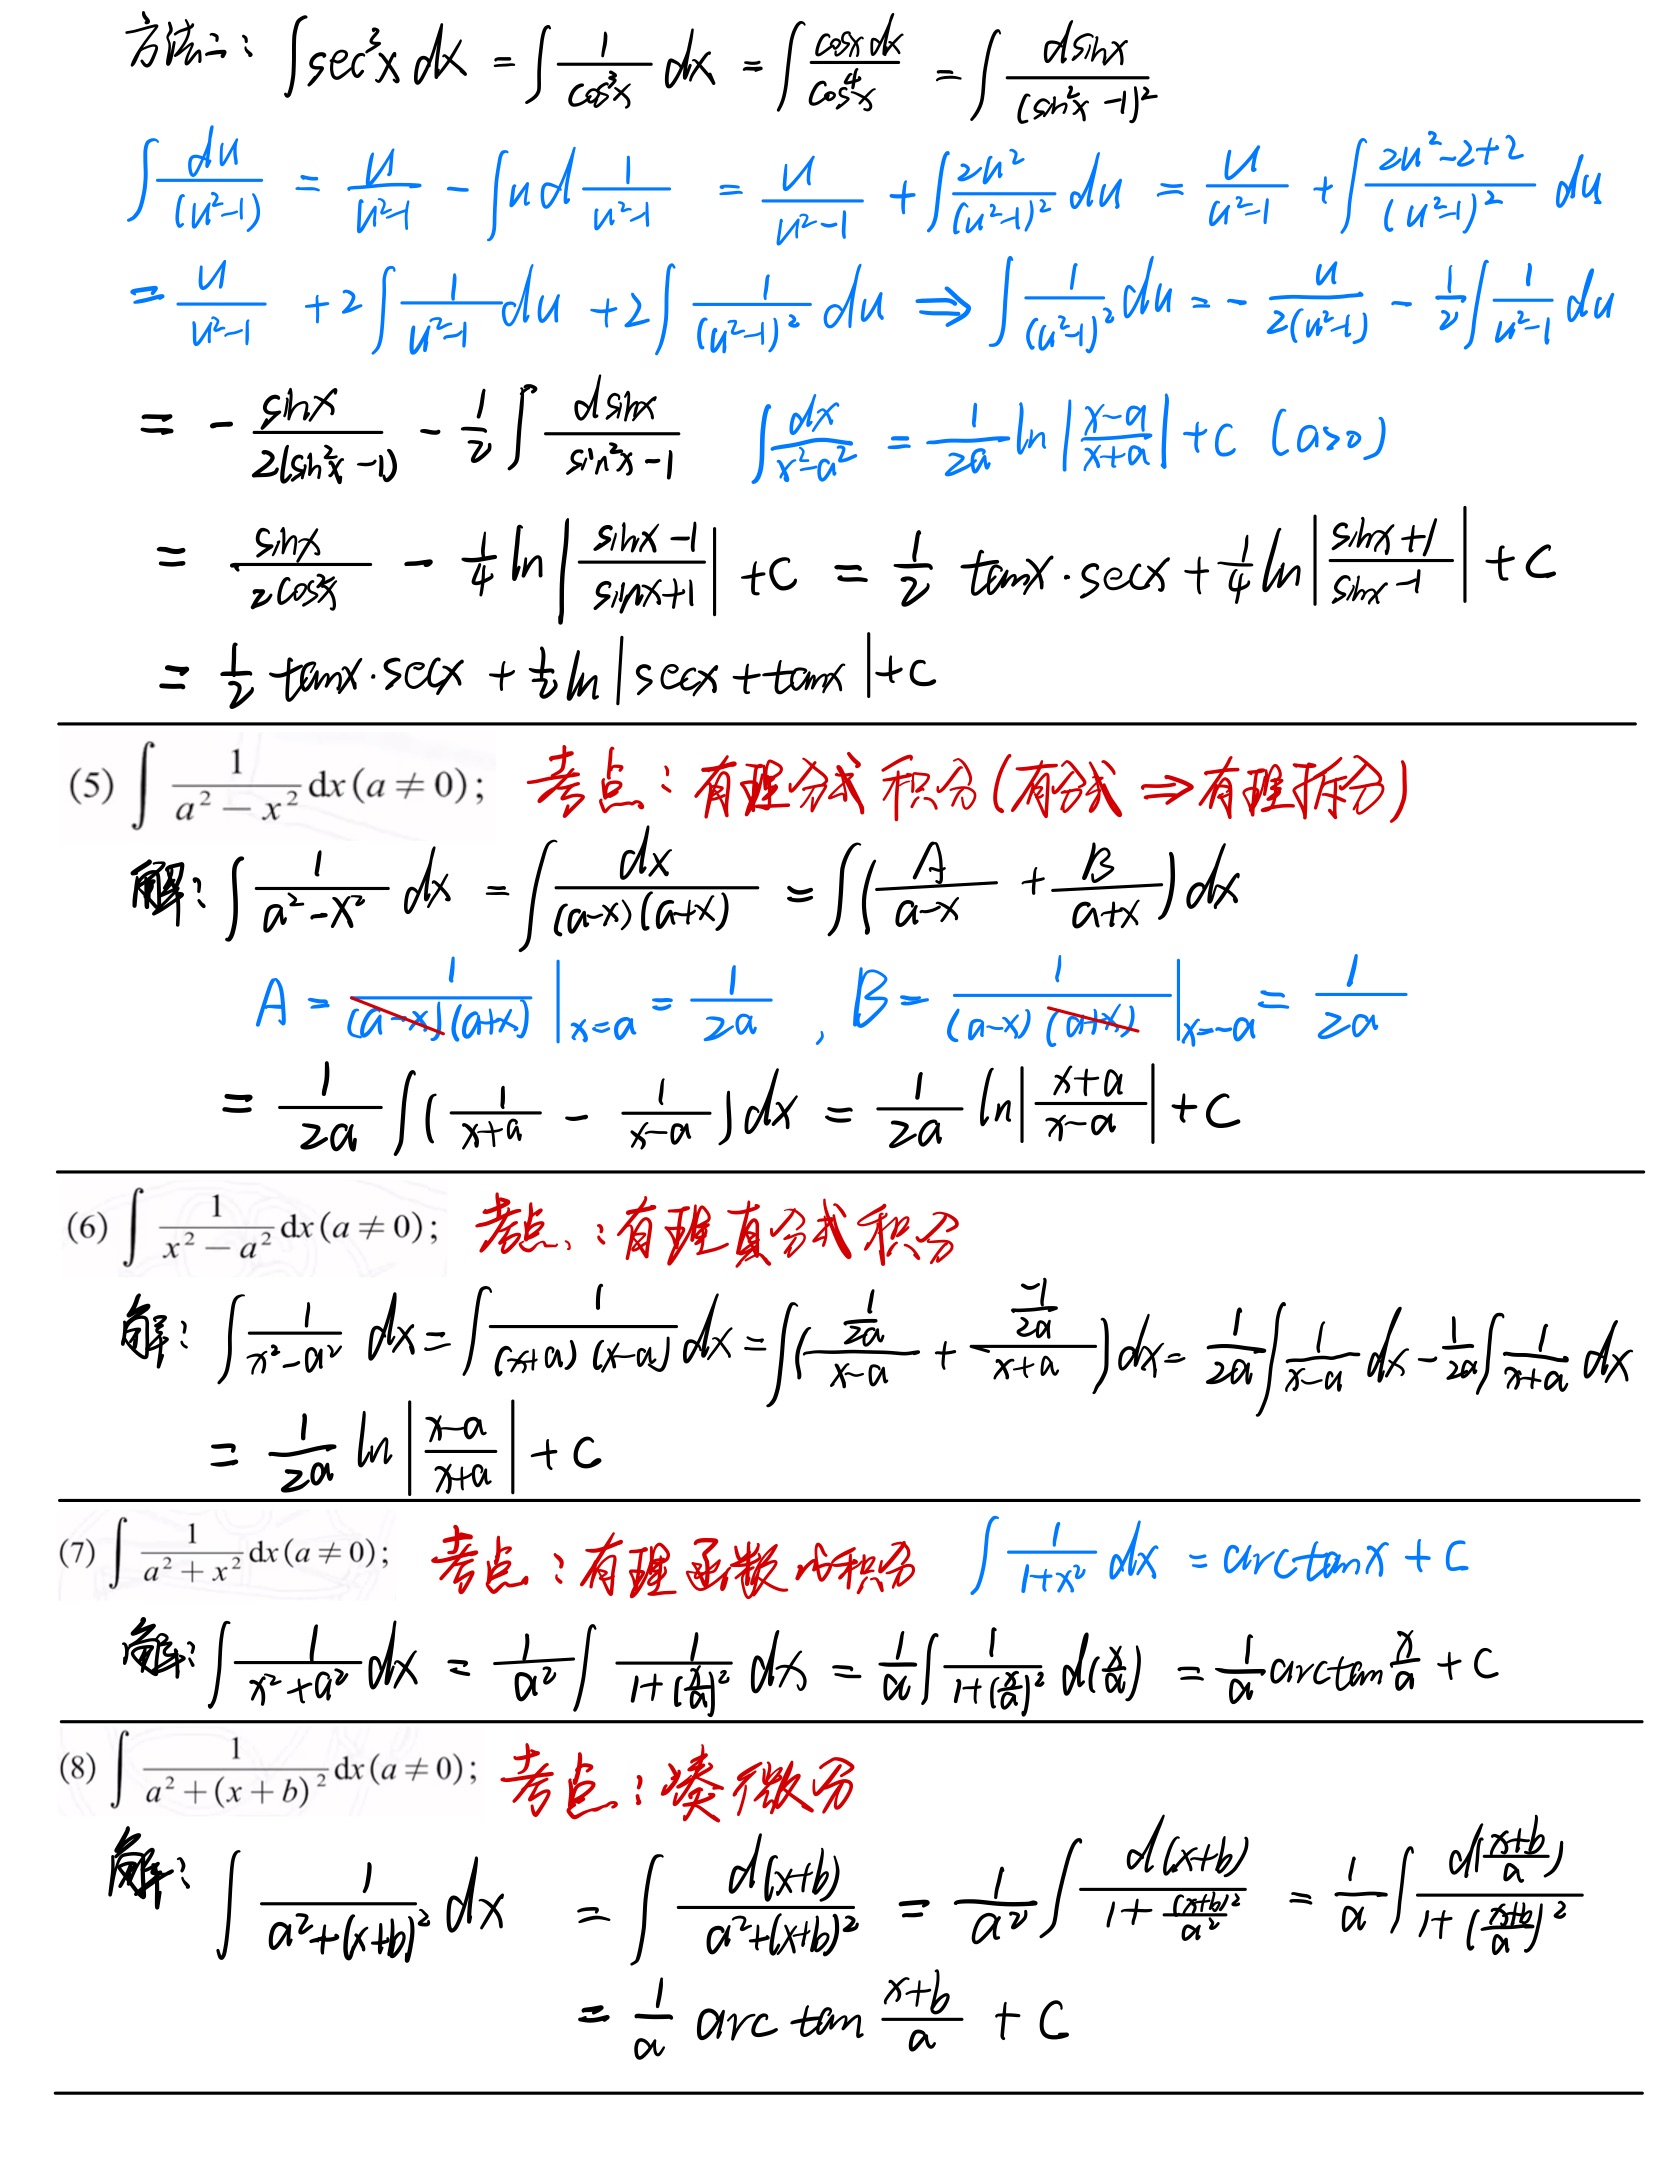 方法二: ∫sec³x dx = ∫ 1/cos³x dx = ∫ cosx dx/cos⁴x = ∫ dsinx/(sin²x -1)²
∫ du/(u²-1) = u/(u²-1) - ∫u d 1/(u²-1) = u/(u²-1) + ∫ 2u²/(u²-1)² du = u/(u²-1) + ∫ (2u²-2+2)/(u²-1)² du
= u/(u²-1) + 2∫ 1/(u²-1) du + 2∫ 1/(u²-1)² du ⇒ ∫ 1/(u²-1)² du = - u/(2(u²-1)) - 1/2 ∫ 1/(u²-1) du
= - sinx/(2(sin²x -1)) - 1/2 ∫ dsinx/(sin²x-1) ∫ dx/(x²-a²) = 1/(2a) ln |(x-a)/(x+a)| + C (a>0)
= sinx/(2cos²x) - 1/4 ln |(sinx-1)/(sinx+1)| + C = 1/2 tanx·secx + 1/4 ln |(sinx+1)/(sinx-1)| + C
= 1/2 tanx·secx + 1/2 ln |secx + tanx| + C
(5) ∫ 1/(a² - x²) dx (a ≠ 0); 考点: 有理分式积分(有分式 ⇒ 有理拆分)
解: ∫ 1/(a²-x²) dx = ∫ dx/((a-x)(a+x)) = ∫( A/(a-x) + B/(a+x) ) dx
A = 1/((a-x)(a+x)) |x=a = 1/(2a) , B = 1/((a-x)(a+x)) |x=-a = 1/(2a)
= 1/(2a) ∫( 1/(x+a) - 1/(x-a) ) dx = 1/(2a) ln |(x+a)/(x-a)| + C
(6) ∫ 1/(x² - a²) dx (a ≠ 0); 考点: 有理真分式积分
解: ∫ 1/(x²-a²) dx = ∫ 1/((x+a)(x-a)) dx = ∫( (1/(2a))/(x-a) + (-1/(2a))/(x+a) ) dx = 1/(2a) ∫ 1/(x-a) dx - 1/(2a) ∫ 1/(x+a) dx
= 1/(2a) ln |(x-a)/(x+a)| + C
(7) ∫ 1/(a² + x²) dx (a ≠ 0); 考点: 有理函数的积分 ∫ 1/(1+x²) dx = arctanx + C
解: ∫ 1/(x²+a²) dx = 1/a² ∫ 1/(1+(x/a)²) dx = 1/a ∫ 1/(1+(x/a)²) d(x/a) = 1/a arctan x/a + C
(8) ∫ 1/(a² + (x + b)²) dx (a ≠ 0); 考点: 凑微分
解: ∫ 1/(a²+(x+b)²) dx = ∫ d(x+b)/(a²+(x+b)²) = 1/a² ∫ d(x+b)/(1+(x+b)²/a²) = 1/a ∫ d((x+b)/a)/(1+((x+b)/a)²)
= 1/a arctan (x+b)/a + C